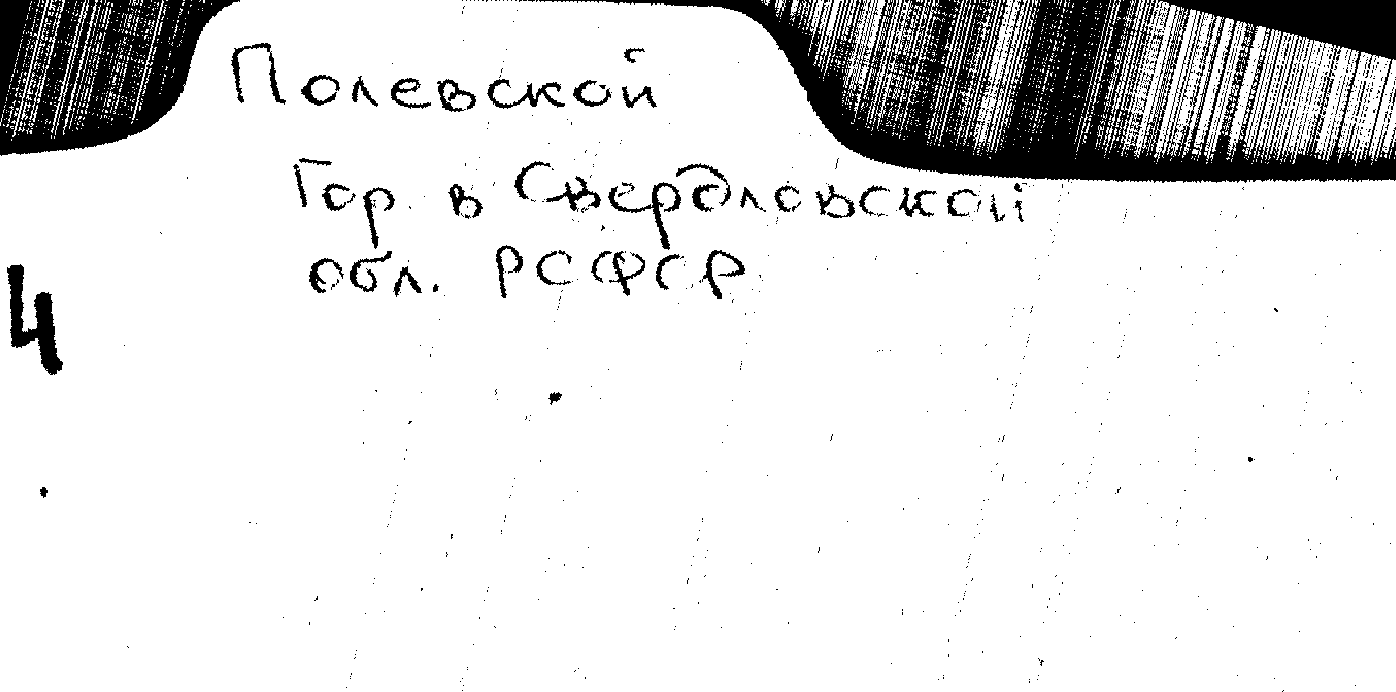 Полевской
Гор. в Свердловской
обл. РСФСР
4